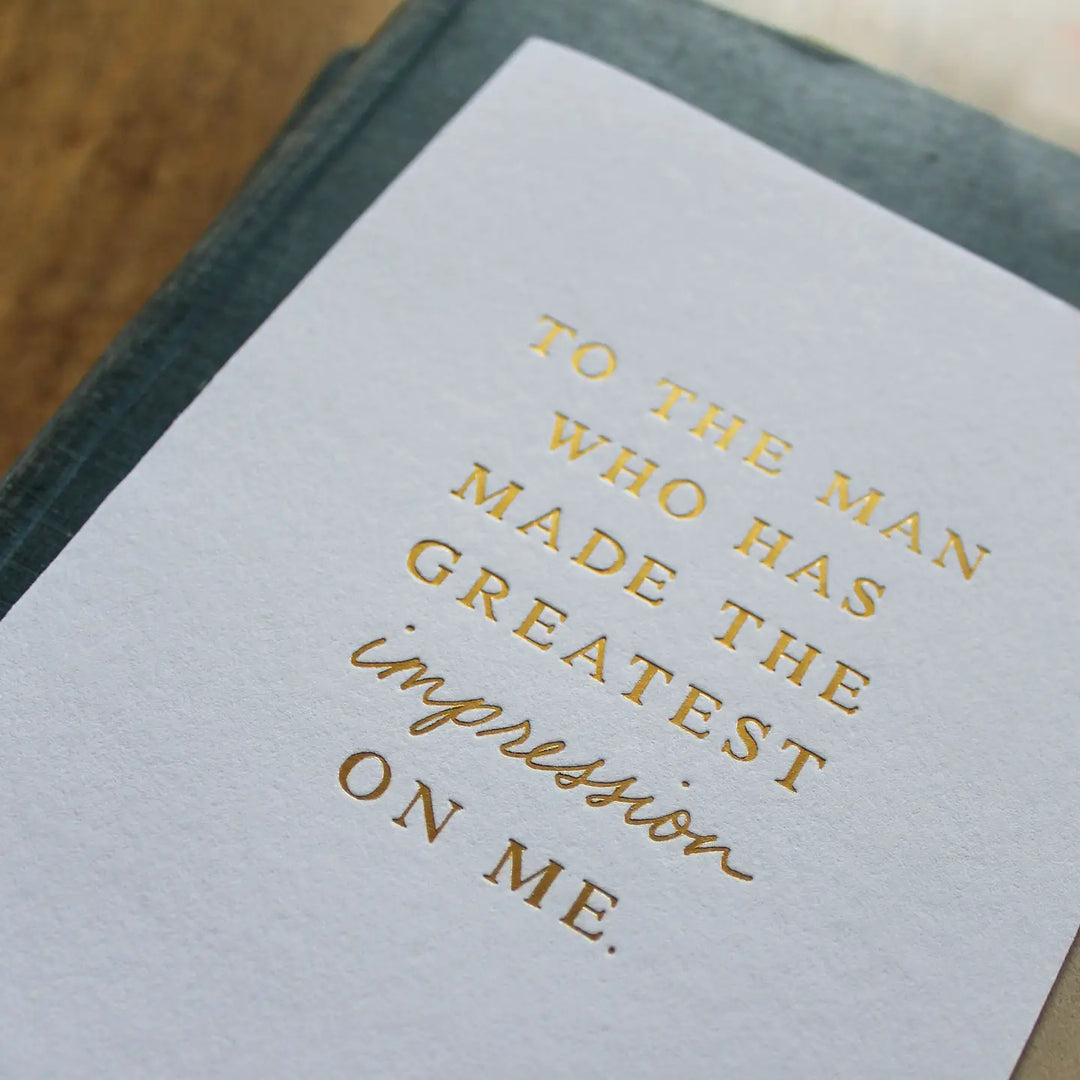 TO THE MAN
WHO HAS
MADE THE
GREATEST
impression
ON ME.